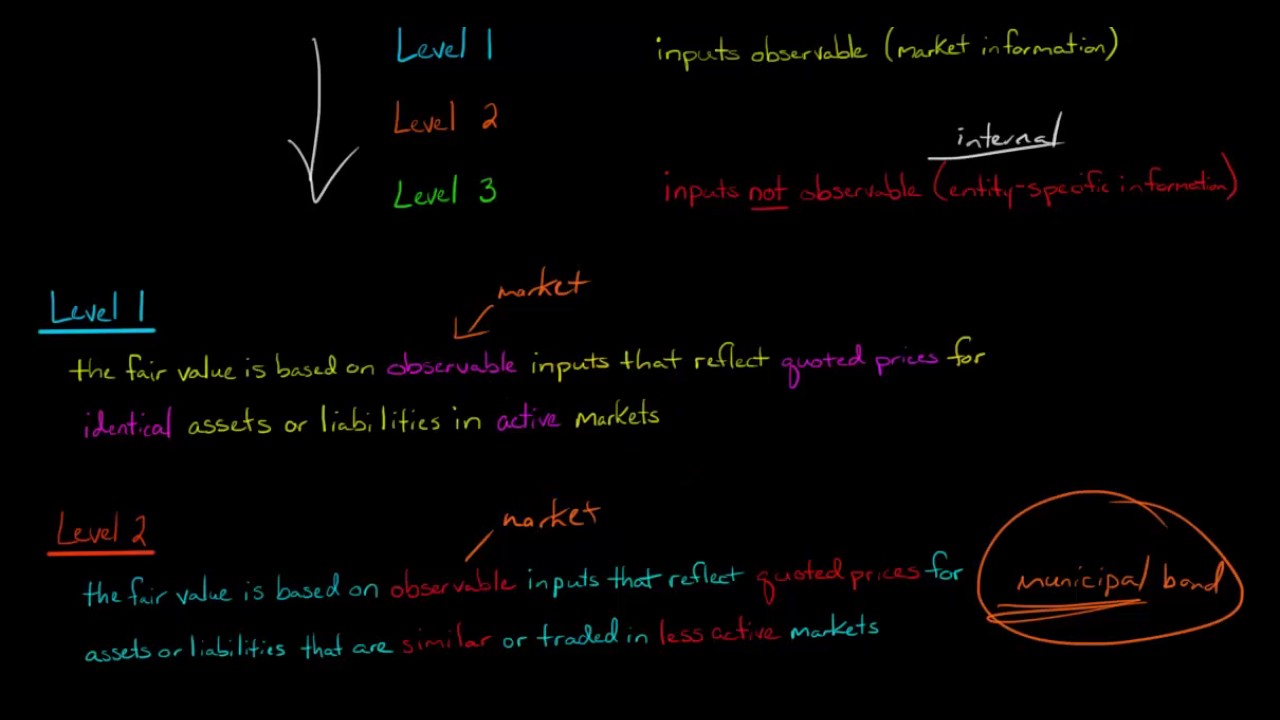 Level 1 inputs observable (market information)
Level 2
internal
Level 3 inputs not observable (entity-specific information)
market
Level 1
the fair value is based on observable inputs that reflect quoted prices for
identical assets or liabilities in active markets
market
Level 2
the fair value is based on observable inputs that reflect quoted prices for
municipal bond
assets or liabilities that are similar or traded in less active markets